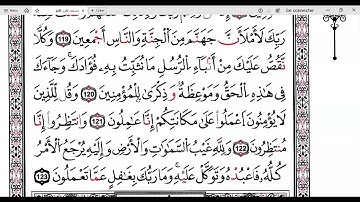 رَبِّكَ لَأَمْلَأَنَّ جَهَنَّمَ مِنَ ٱلْجِنَّةِ وَٱلنَّاسِ أَجْمَعِينَ ١١٩ وَكُلًّا
نَّقُصُّ عَلَيْكَ مِنْ أَنۢبَآءِ ٱلرُّسُلِ مَا نُثَبِّتُ بِهِۦ فُؤَادَكَ وَجَآءَكَ
فِى هَٰذِهِ ٱلْحَقُّ وَمَوْعِظَةٌ وَذِكْرَىٰ لِلْمُؤْمِنِينَ ١٢٠ وَقُل لِّلَّذِينَ
لَا يُؤْمِنُونَ ٱعْمَلُوا۟ عَلَىٰ مَكَانَتِكُمْ إِنَّا عَٰمِلُونَ ١٢١ وَٱنتَظِرُوٓا۟ إِنَّا
مُنتَظِرُونَ ١٢٢ وَلِلَّهِ غَيْبُ ٱلسَّمَٰوَٰتِ وَٱلْأَرْضِ وَإِلَيْهِ يُرْجَعُ ٱلْأَمْرُ
كُلُّهُۥ فَٱعْبُدْهُ وَتَوَكَّلْ عَلَيْهِ وَمَا رَبُّكَ بِغَٰفِلٍ عَمَّا تَعْمَلُونَ ١٢٣